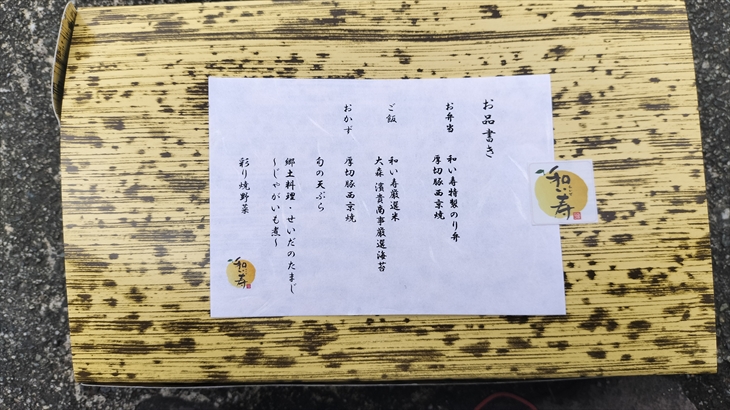 お品書き
お弁当 和い寿特製のり弁
厚切豚西京焼
ご飯 和い寿厳選米
大森 濱貴商事厳選海苔
おかず 厚切豚西京焼
旬の天ぷら
郷土料理・せいだのたまじ
~じゃがいも煮~
彩り焼野菜
和い寿
和い寿